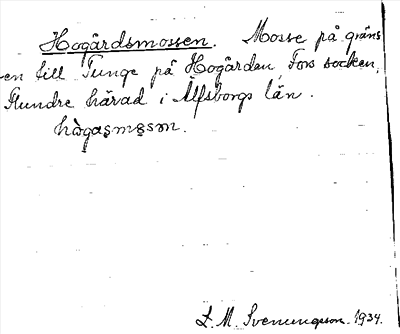 Hogårdsmossen. Mosse på gräns
en till Tunge på Hogården, Fors socken,
Flundre härad i Älfsborgs län.
L. M. Svenungsson. 1934.